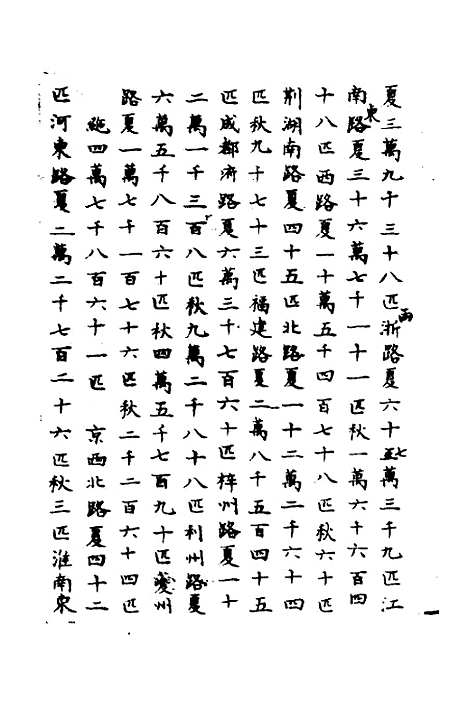 夏三萬九千三十八匹浙西路夏六十五七萬三千九匹江
南東路夏三十六萬七千一十一匹秋一萬六十六百四
十八匹西路夏一十萬五千四百七十八匹秋六十匹
荆湖南路夏四十五匹北路夏一十二萬二千六十四
匹秋九十七十三匹福建路夏二萬八千五百四十五
匹成都府路夏六萬三十七百六十匹梓州路夏一十
二萬一千三百八匹秋九萬二千八十八匹利州路夏
六萬五千八百六十匹秋四萬五千七百九十匹夔州
路夏一萬七千一百七十六匹秋二千二百六十四匹
絁四萬七千八百六十一匹 京西北路夏四十二
匹河東路夏二萬二千七百二十六匹秋三匹淮南東